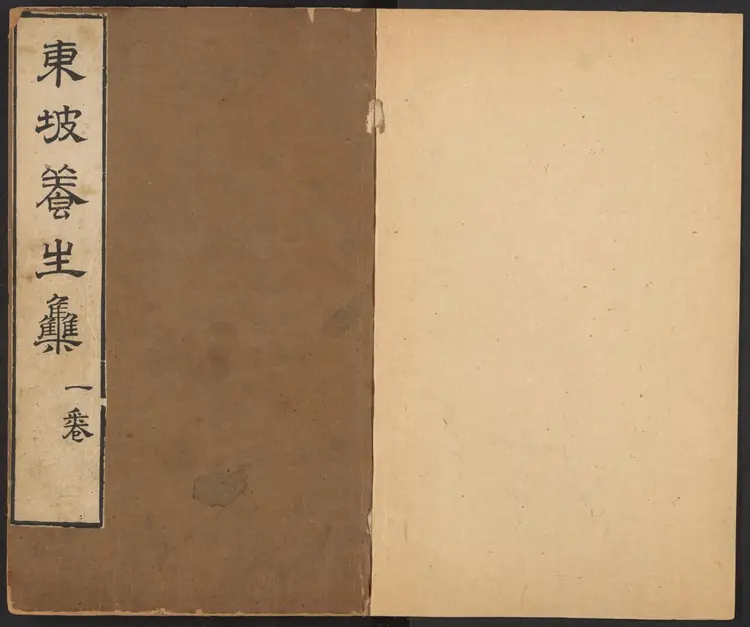 東坡養生集
一卷